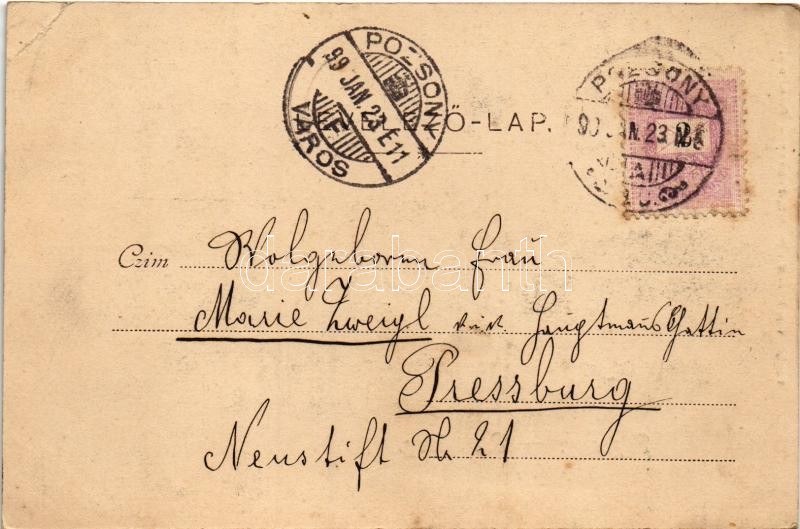 POZSONY
99 JAN. 23. E11
F
VÁROS
LEVELEZŐ-LAP.
POZSONY
99 JAN. 23
2
Czim Wolgeboren Frau
Marie Zweigl k.u.k. Hauptmanns Gattin
Pressburg
Neustift No 21
darabanth